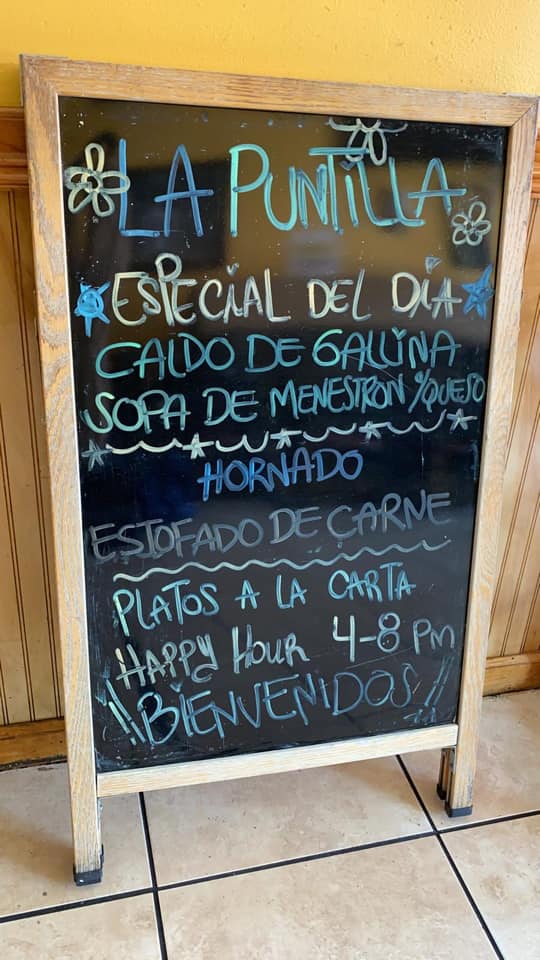 LA PUNTILLA
ESPECIAL DEL DíA
CALDO DE GALLINA
SOPA DE MENESTRON %QUESO
HORNADO
ESTOFADO DE CARNE
PLATOS A LA CARTA
HAPPY HOUR 4-8 PM
BIENVENIDOS